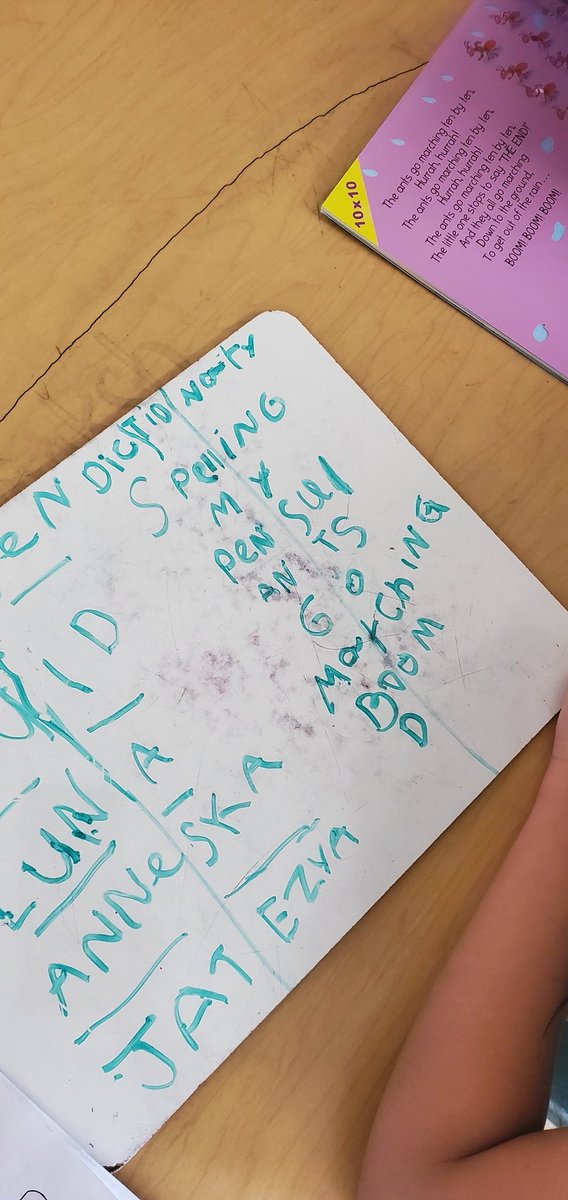 The ants go marching ten by ten,
Hurrah, hurrah!
The ants go marching ten by ten,
Hurrah, hurrah!
The ants go marching ten by ten,
The little one stops to say "THE END!"
And they all go marching
Down to the ground
To get out of the rain...
BOOM! BOOM! BOOM!
10 x 10
DicTioNarY
SPelliNG
MY
PeNSUl
ANTS
GO
MarChiNG
BOOM
D
ID
A
UN
ANNeSKA
JAT EZYA